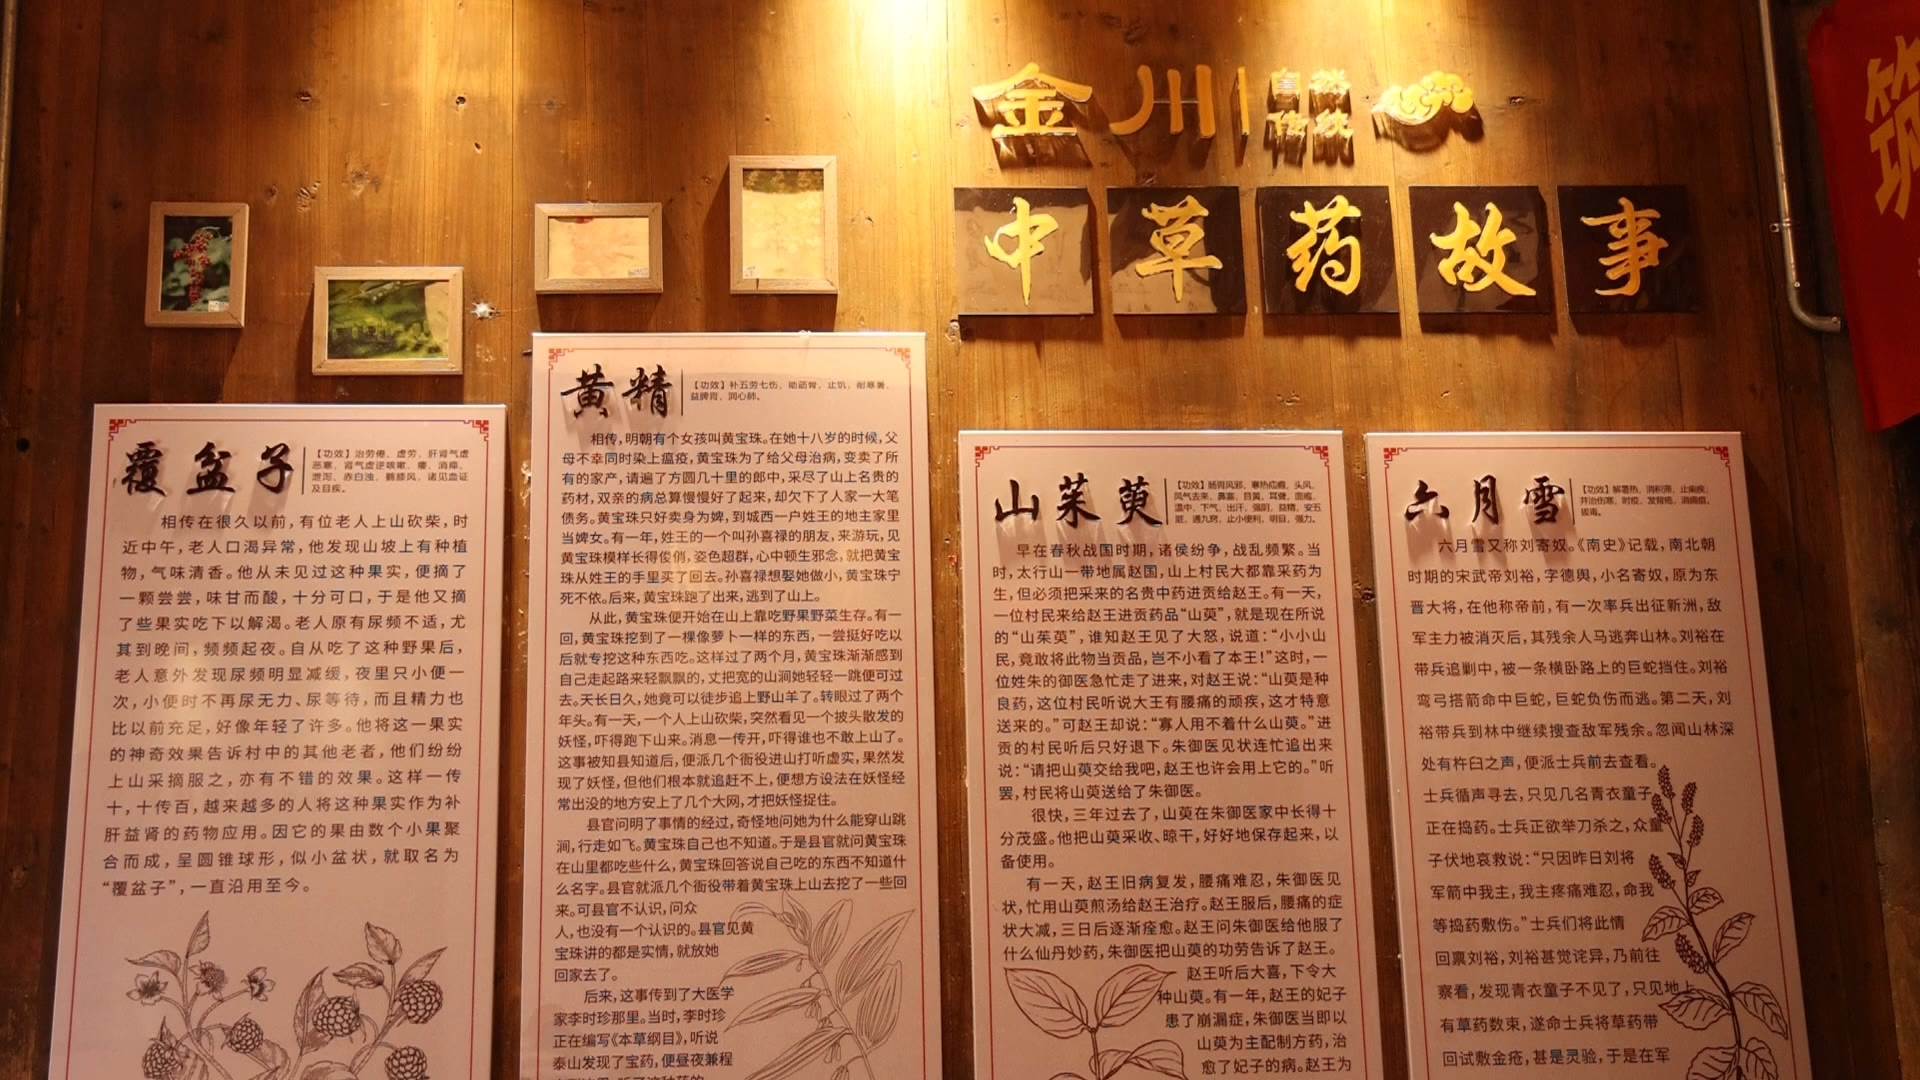 金川
自然
传统
中草药故事
筑
覆盆子
【功效】治劳倦、虚劳，肝肾气虚
恶寒，肾气虚逆咳嗽、痿、消瘅、
泄泻、赤白浊，鹤膝风，诸见血证
及目疾。
相传在很久以前，有位老人上山砍柴，时
近中午，老人口渴异常，他发现山坡上有种植
物，气味清香。他从未见过这种果实，便摘了
一颗尝尝，味甘而酸，十分可口，于是他又摘
了些果实吃下以解渴。老人原有尿频不适，尤
其到晚间，频频起夜。自从吃了这种野果后，
老人意外发现尿频明显减缓，夜里只小便一
次，小便时不再尿无力、尿等待，而且精力也
比以前充足，好像年轻了许多。他将这一果实
的神奇效果告诉村中的其他老者，他们纷纷
上山采摘服之，亦有不错的效果。这样一传
十，十传百，越来越多的人将这种果实作为补
肝益肾的药物应用。因它的果由数个小果聚
合而成，呈圆锥球形，似小盆状，就取名为
“覆盆子”，一直沿用至今。
黄精
【功效】补五劳七伤，助筋骨，止饥，耐寒暑，
益脾胃，润心肺。
相传，明朝有个女孩叫黄宝珠。在她十八岁的时候，父
母不幸同时染上瘟疫，黄宝珠为了给父母治病，变卖了所
有的家产，请遍了方圆几十里的郎中，采尽了山上名贵的
药材，双亲的病总算慢慢好了起来，却欠下了人家一大笔
债务。黄宝珠只好卖身为婢，到城西一户姓王的地主家里
当婢女。有一年，姓王的一个叫孙喜禄的朋友，来游玩，见
黄宝珠模样长得俊俏，姿色超群，心中顿生邪念，就把黄宝
珠从姓王的手里买了回去。孙喜禄想娶她做小，黄宝珠宁
死不依。后来，黄宝珠跑了出来，逃到了山上。
从此，黄宝珠便开始在山上靠吃野果野菜生存。有一
回，黄宝珠挖到了一棵像萝卜一样的东西，一尝挺好吃以
后就专挖这种东西吃。这样过了两个月，黄宝珠渐渐感到
自己走起路来轻飘飘的，丈把宽的山涧她轻轻一跳便可过
去。天长日久，她竟可以徒步追上野山羊了。转眼过了两个
年头。有一天，一个人上山砍柴，突然看见一个披头散发的
妖怪，吓得跑下山来。消息一传开，吓得谁也不敢上山了。
这事被知县知道后，便派几个衙役进山打听虚实，果然发
现了妖怪，但他们根本就追赶不上，便想方设法在妖怪经
常出没的地方安上了几个大网，才把妖怪捉住。
县官问明了事情的经过，奇怪地问她为什么能穿山跳
涧，行走如飞。黄宝珠自己也不知道。于是县官就问黄宝珠
在山里都吃些什么，黄宝珠回答说自己吃的东西不知道什
么名字。县官就派几个衙役带着黄宝珠上山去挖了一些回
来。可县官不认识，问众
人，也没有一个认识的。县官见黄
宝珠讲的都是实情，就放她
回家去了。
后来，这事传到了大医学
家李时珍那里。当时，李时珍
正在编写《本草纲目》，听说
泰山发现了宝药，便昼夜兼程
山茱萸
【功效】肠胃风邪，寒热疝瘕，头风，
风气去来，鼻塞，目黄，耳聋，面疱，
温中，下气，出汗，强阴，益精，安五
脏，通九窍，止小便利，明目，强力。
早在春秋战国时期，诸侯纷争，战乱频繁。当
时，太行山一带地属赵国，山上村民大都靠采药为
生，但必须把采来的名贵中药进贡给赵王。有一天，
一位村民来给赵王进贡药品“山萸”，就是现在所说
的“山茱萸”，谁知赵王见了大怒，说道：“小小山
民，竟敢将此物当贡品，岂不小看了本王！”这时，一
位姓朱的御医急忙走了进来，对赵王说：“山萸是种
良药，这位村民听说大王有腰痛的顽疾，这才特意
送来的。”可赵王却说：“寡人用不着什么山萸。”进
贡的村民听后只好退下。朱御医见状连忙追出来
说：“请把山萸交给我吧，赵王也许会用上它的。”听
罢，村民将山萸送给了朱御医。
很快，三年过去了，山萸在朱御医家中长得十
分茂盛。他把山萸采收、晾干，好好地保存起来，以
备使用。
有一天，赵王旧病复发，腰痛难忍，朱御医见
状，忙用山萸煎汤给赵王治疗。赵王服后，腰痛的症
状大减，三日后逐渐痊愈。赵王问朱御医给他服了
什么仙丹妙药，朱御医把山萸的功劳告诉了赵王。
赵王听后大喜，下令大
种山萸。有一年，赵王的妃子
患了崩漏症，朱御医当即以
山萸为主配制方药，治
愈了妃子的病。赵王为
六月雪
【功效】解暑热，消积滞，止痢疾，
并治伤寒，时疫，发背疮，消痈疽，
拔毒。
六月雪又称刘寄奴。《南史》记载，南北朝
时期的宋武帝刘裕，字德舆，小名寄奴，原为东
晋大将，在他称帝前，有一次率兵出征新洲，敌
军主力被消灭后，其残余人马逃奔山林。刘裕在
带兵追剿中，被一条横卧路上的巨蛇挡住。刘裕
弯弓搭箭命中巨蛇，巨蛇负伤而逃。第二天，刘
裕带兵到林中继续搜查敌军残余。忽闻山林深
处有杵臼之声，便派士兵前去查看。
士兵循声寻去，只见几名青衣童子
正在捣药。士兵正欲举刀杀之，众童
子伏地哀救说：“只因昨日刘将
军箭中我主，我主疼痛难忍，命我
等捣药敷伤。”士兵们将此情
回禀刘裕，刘裕甚觉诧异，乃前往
察看，发现青衣童子不见了，只见地上
有草药数束，遂命士兵将草药带
回试敷金疮，甚是灵验，于是在军